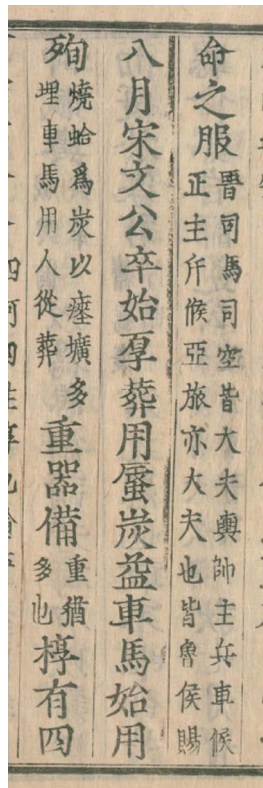 命之服晉司馬司空皆大夫輿帥主兵車候正主斥候亞旅亦大夫也皆魯侯賜
八月宋文公卒始厚葬用蜃炭益車馬始用
殉燒蛤爲炭以瘞壙多埋車馬用人從葬重器備重猶多也椁有四